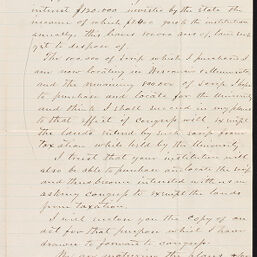 interest $120.000 invested by the State the
income of which goes to the institution
annually. this leaves acres of land
yet to dispose of
The 100.000 of Scrip which I purchased I
am now locating in Wisconsin & Minnesota
and the remaining 100.000 of Scrip I hope
to purchase and locate for the University
and think I shall succeed in my plans
to that effect if congress will exempt
the lands entered by such scrip from
taxation while held by the University.
I trust that your institution will
also be able to purchase and locate the scrip
and thus become interested with us in
asking congress to exempt the lands
from taxation.
I will enclose you the copy of an
act for that purpose which I have
drawn to forward to congress.
We are maturing the plans